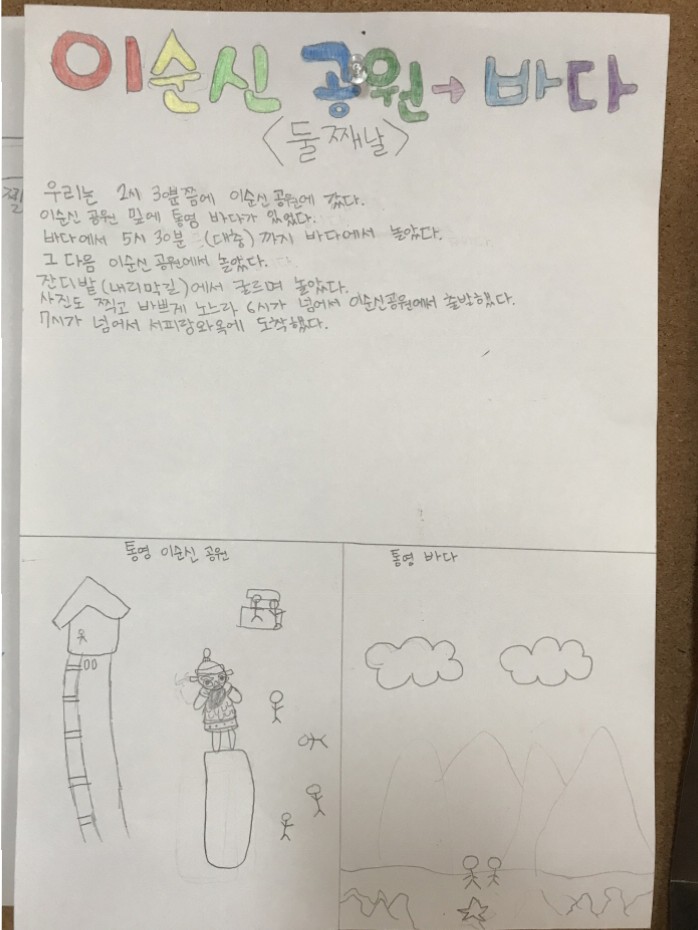 이순신 공원→바다
<둘째날>
우리는 2시 30분쯤에 이순신 공원에 갔다.
이순신 공원 밑에 통영 바다가 있었다.
바다에서 5시 30분 (대충) 까지 바다에서 놀았다.
그 다음 이순신 공원에서 놀았다.
잔디밭(내리막길)에서 구르며 놀았다.
사진도 찍고 바쁘게 노느라 6시가 넘어서 이순신공원에서 출발했다.
7시가 넘어서 서피랑와옥에 도착했다.
통영 이순신 공원
통영 바다